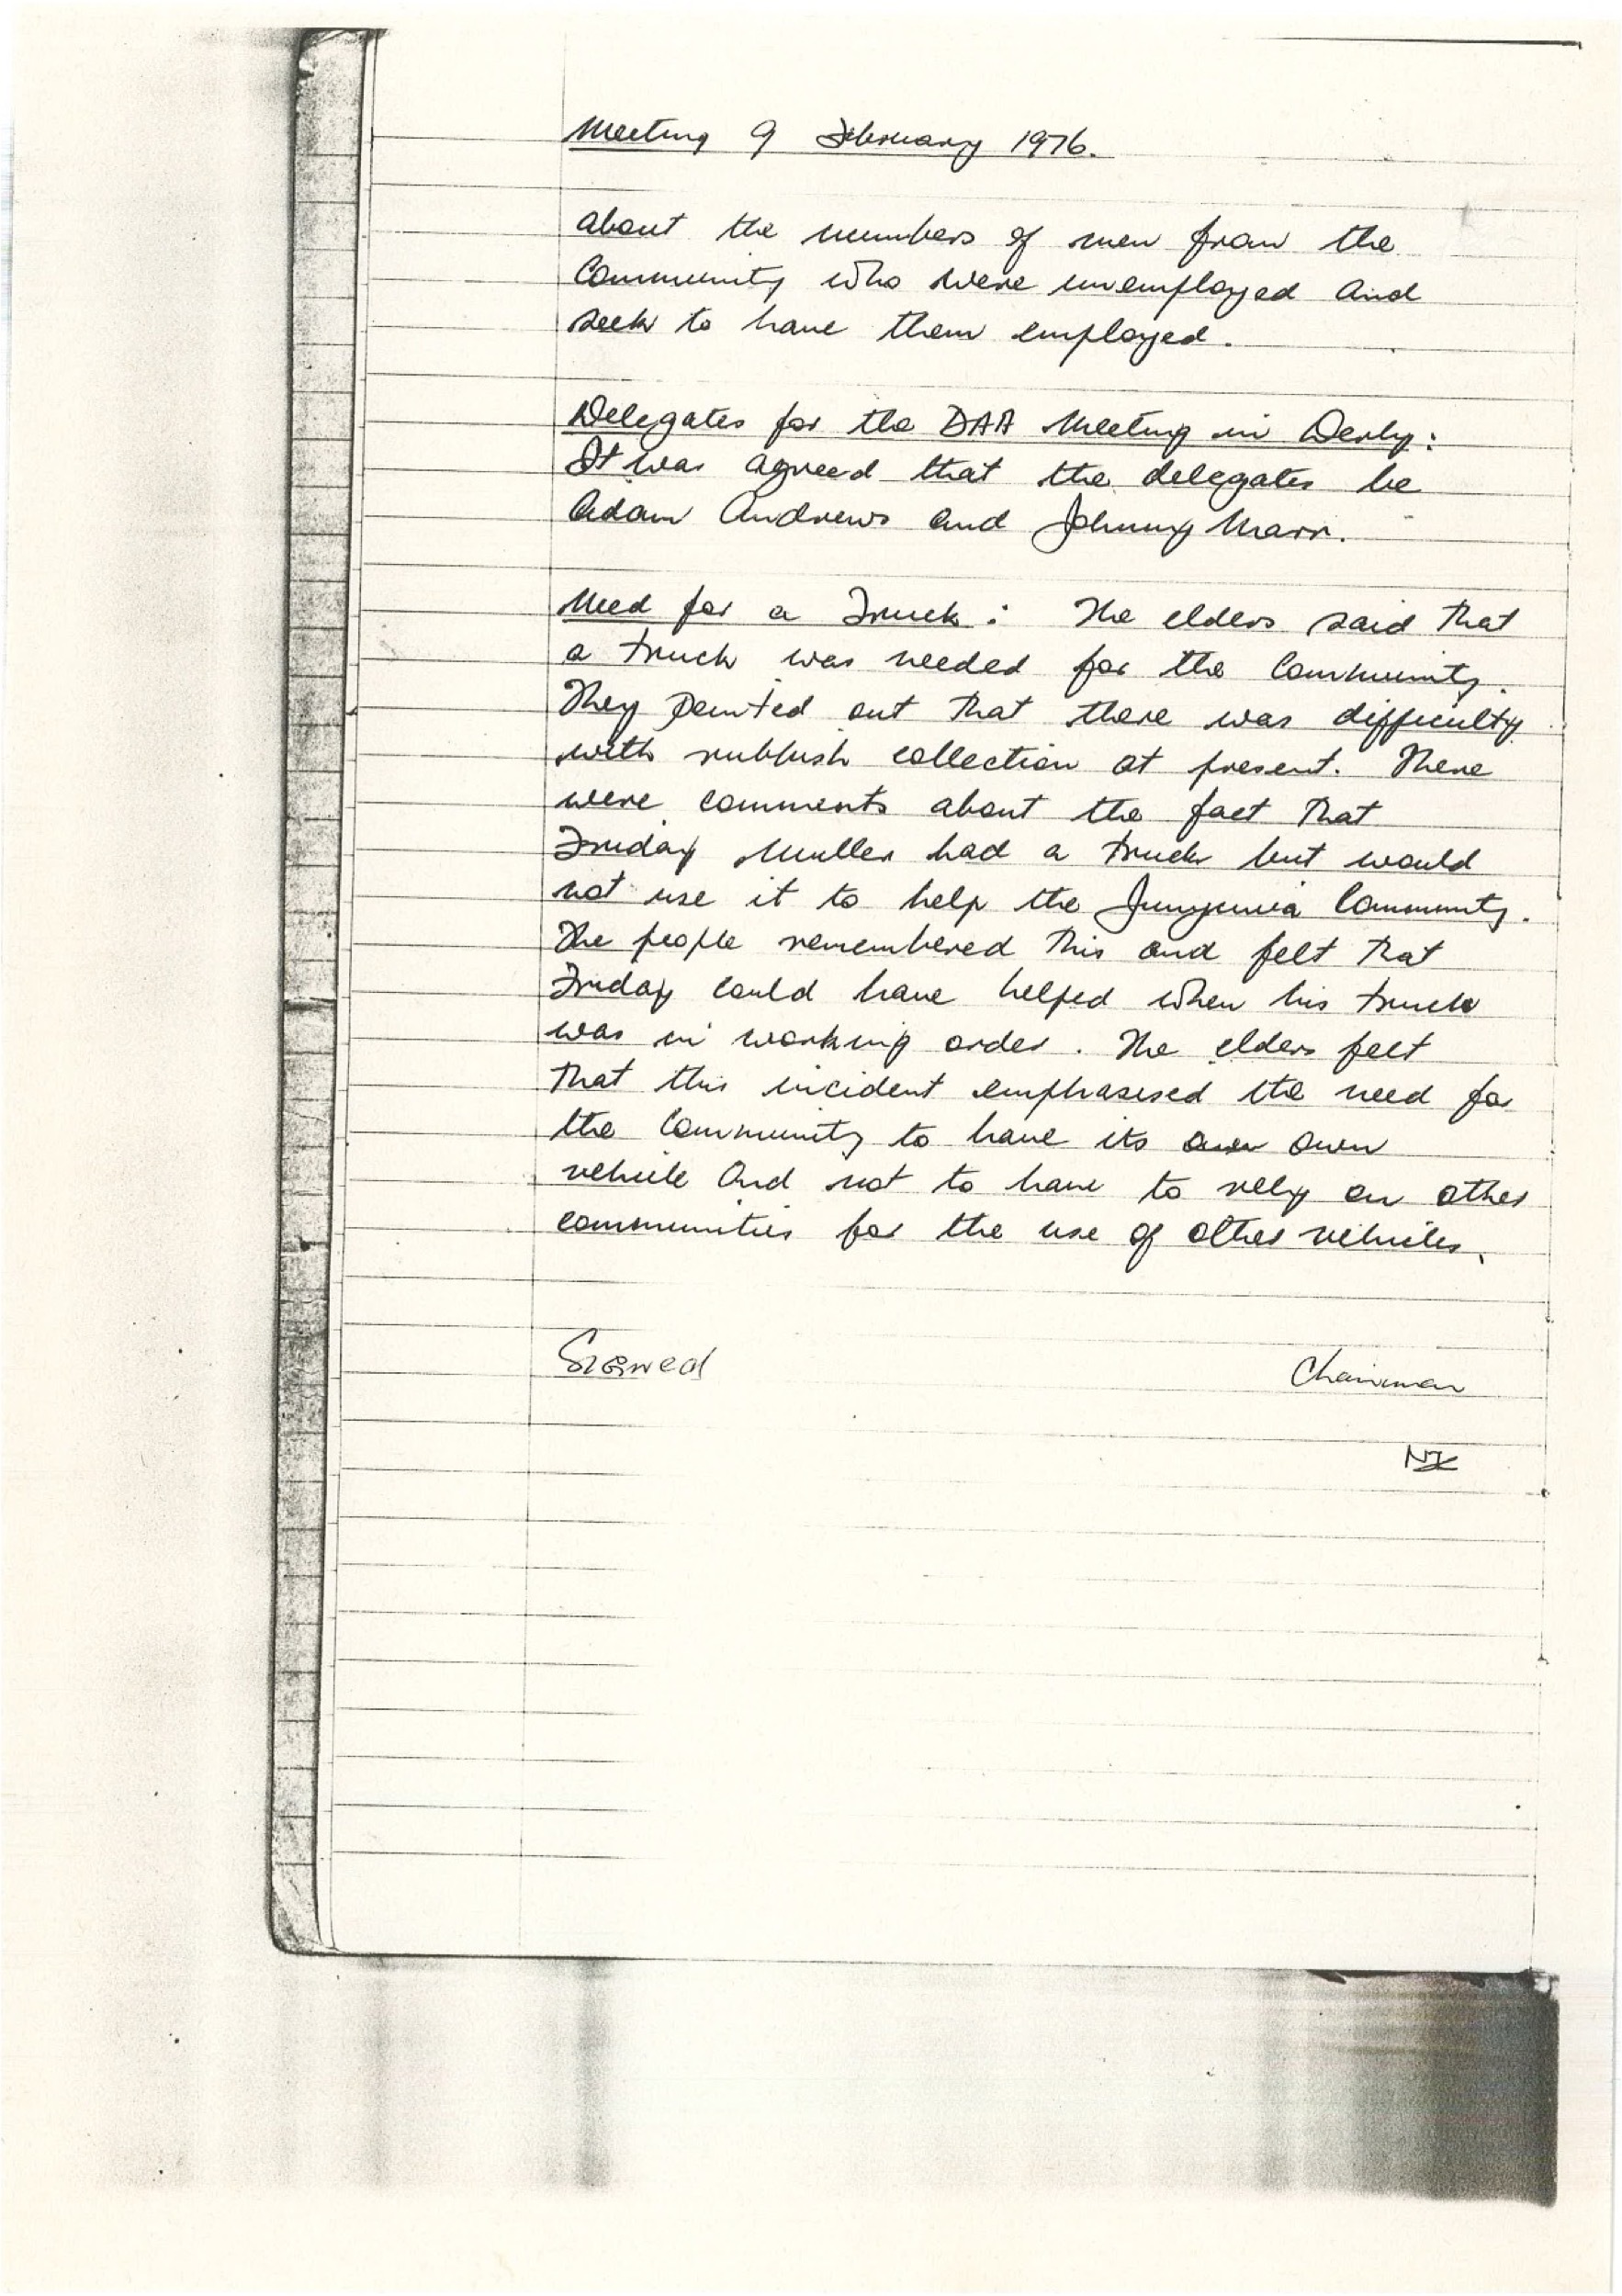 Meeting 9 February 1976.
about the numbers of men from the
Community who were unemployed and
seek to have them employed.
Delegates for the DAA Meeting in Derby:
It was agreed that the delegates be
Adam Andrews and Johnny Marr.
Need for a Truck: The elders said that
a truck was needed for the Community.
They pointed out that there was difficulty
with rubbish collection at present. There
were comments about the fact that
Friday Muller had a truck but would
not use it to help the Junjuwa Community.
The people remembered this and felt that
Friday could have helped when his truck
was in working order. The elders felt
that this incident emphasised the need for
the Community to have its own
vehicle and not to have to rely on other
communities for the use of other vehicles.
Signed Chairman